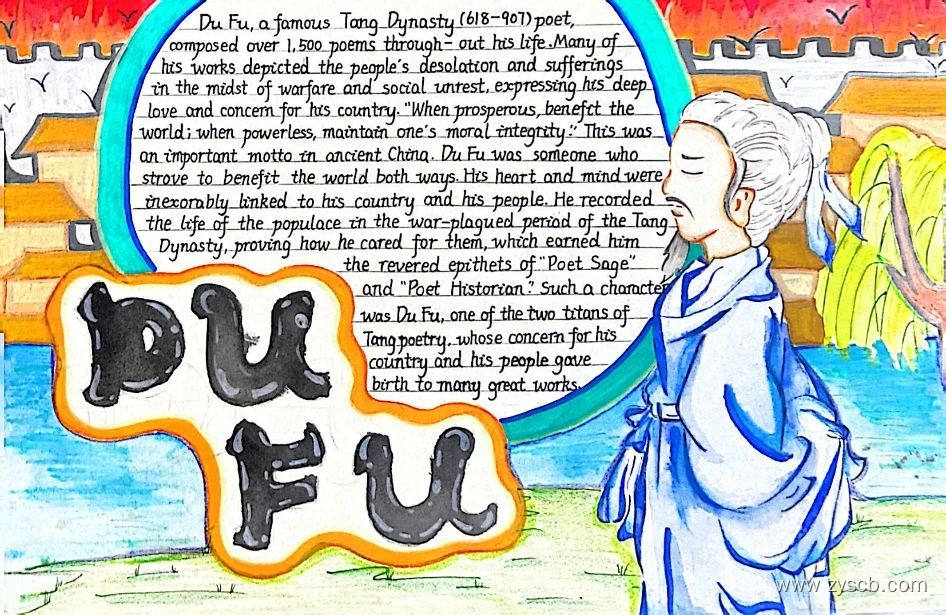 Du Fu, a famous Tang Dynasty (618-907) poet,
composed over 1,500 poems through- out his life. Many of
his works depicted the people's desolation and sufferings
in the midst of warfare and social unrest, expressing his deep
love and concern for his country. "When prosperous, benefct the
world; when powerless, maintain one's moral integrity." This was
an important motto in ancient China. Du Fu was someone who
strove to benefit the world both ways. His heart and mind were
inexorably linked to his country and his people. He recorded
the life of the populace in the war-plagued period of the Tang
Dynasty, proving how he cared for them, which earned him
the revered epithets of "Poet Sage"
and "Poet Historian." Such a character
was Du Fu, one of the two titans of
Tang poetry, whose concern for his
country and his people gave
birth to many great works.
DU
FU
www.zyscb.com